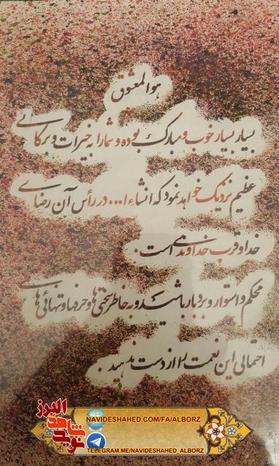 هوالمعشوق
بسیار بسیار خوب و مبارک بوده و شما را به خیرات و برکاتی
عظیم نزدیک خواهد نمود که انشاءا... در رأس آن رضای
خدا و قرب خداوندی است.
محکم و استوار و بردبار باشید و به خاطر سختی‌ها و حرفها و تنهائی‌های
احتمالی این نعمت را از دست ندهید
نوید شاهد البرز
NAVIDESHAHED.COM/FA/ALBORZ
TELEGRAM.ME/NAVIDESHAHED_ALBORZ